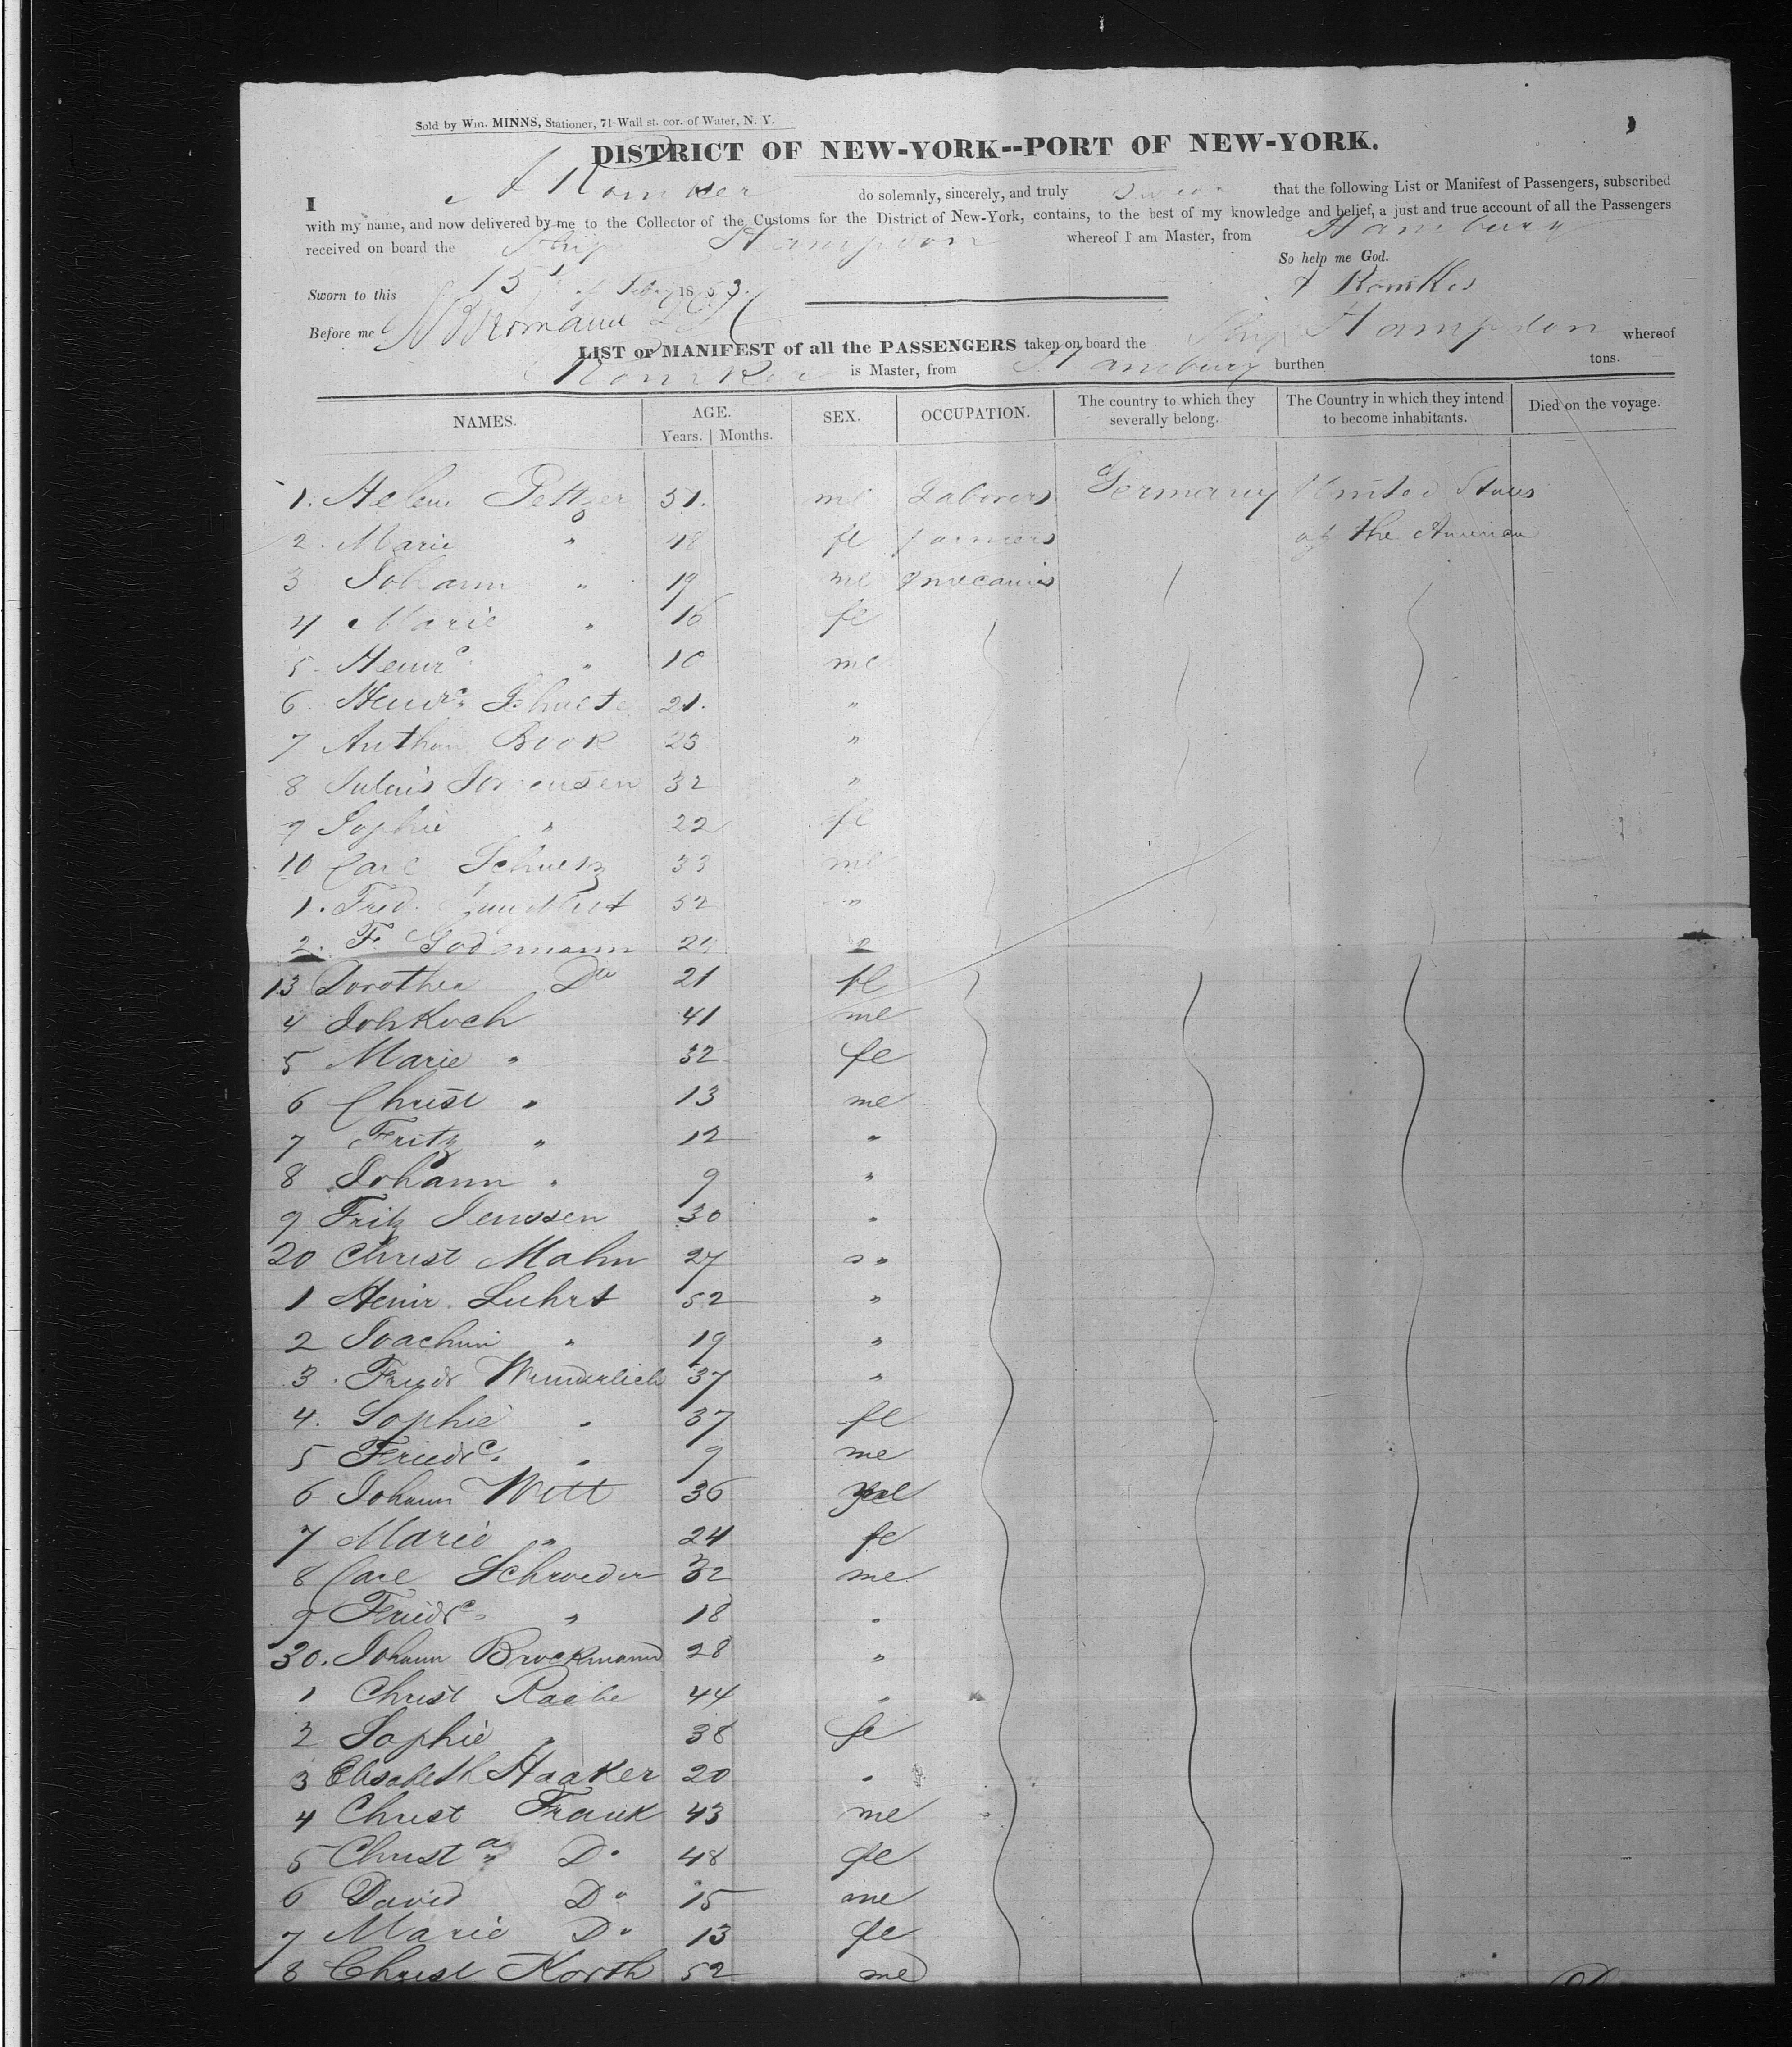 Sold by Wm. MINNS, Stationer, 71 Wall st. cor. of Water, N. Y.
DISTRICT OF NEW-YORK--PORT OF NEW-YORK.
I do solemnly, sincerely, and truly that the following List or Manifest of Passengers, subscribed
with my name, and now delivered by me to the Collector of the Customs for the District of New-York, contains, to the best of my knowledge and belief, a just and true account of all the Passengers
received on board the Ship Hampdon whereof I am Master, from Hamburg
So help me God.
Sworn to this 15 of 1853.
Before me
LIST or MANIFEST of all the PASSENGERS taken on board the Ship Hampdon whereof
is Master, from Hamburg burthen tons.
NAMES. AGE. Years. Months. SEX. OCCUPATION. The country to which they severally belong. The Country in which they intend to become inhabitants. Died on the voyage.
1. 51. me Laborers Germany United States
2. Marie " 48 fe farmers of the America
3 Johann " 19 me
4 Marie " 16 fe
5 Heinrc " 10 me
6. Heinrc 21. "
7 Book 23 "
8 32 "
9 Sophie " 22 fe
10 Carl Schultz 33 me
1. Fred. 52 "
2. F. Godemann "
13 Dorothea Do 21 fe
4 Joh Koch 41 me
5 Marie " 32 fe
6 Christ " 13 me
7 Fritz " 12 "
8 Johann " 9 "
9 Fritz Jenssen 30 "
20 Christ Mahn 27 "
1 Heinr. Luhrt 52 "
2 Joachim " 19 "
3. Friedr Wunderlich 37 "
4. Sophie " 37 fe
5 Friedrc. " 9 me
6 Johann Witt 36 me
7 Marie " 24 fe
8 Carl Schroeder 32 me
9 Friedrc " 18 "
30. Johann Brockmann 28 "
1 Christ Raabe 44 "
2 Sophie " 38 fe
3 Elisabeth Haaker 20 "
4 Christ Frank 43 me
5 Christa " Do 48 fe
6 David Do 15 me
7 Marie Do 13 fe
8 Christ Korth 52 me